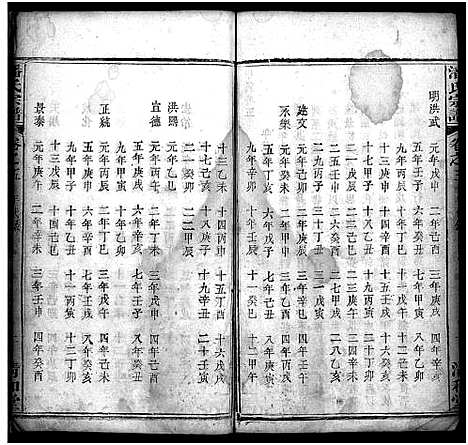 潘氏宗譜
明洪武 元年戊申 二年己酉 三年庚戌 四年辛亥
五年壬子 六年癸丑 七年甲寅 八年乙卯
九年丙辰 十年丁巳 十一戊午 十二己未
十三庚申 十四辛酉 十五壬戌 十六癸亥
十七甲子 十八乙丑 十九丙寅 二十丁卯
二一戊辰 二二己巳 二三庚午 二四辛未
二五壬申 二六癸酉 二七甲戌 二八乙亥
二九丙子 三十丁丑 三一戊寅
建文 元年己卯 二年庚辰 三年辛巳 四年壬午
永樂 元年癸未 二年甲申 三年乙酉 四年丙戌
五年丁亥 六年戊子 七年己丑 八年庚寅
九年辛卯 十年壬辰 十一癸巳 十二甲午
十三乙未 十四丙申 十五丁酉 十六戊戌
十七己亥 十八庚子 十九辛丑 二十壬寅
二一癸卯 二二甲辰
洪熙 元年乙巳
宣德 元年丙午 二年丁未 三年戊申 四年己酉
五年庚戌 六年辛亥 七年壬子 八年癸丑
九年甲寅 十年乙卯
正統 元年丙辰 二年丁巳 三年戊午 四年己未
五年庚申 六年辛酉 七年壬戌 八年癸亥
九年甲子 十年乙丑 十一丙寅 十二丁卯
十三戊辰 十四己巳
景泰 元年庚午 二年辛未 三年壬申 四年癸酉
潘氏宗譜